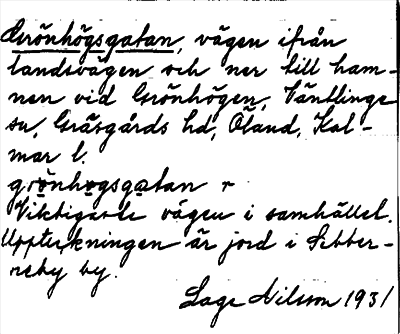 Grönhögsgatan, vägen ifrån
landsvägen och ner till ham-
nen vid Grönhögen, Väntlinge
sn, Gräsgårds hd, Öland, Kal-
mar l.
grönhogsgatan r
Viktigaste vägen i samhället.
Uppteckningen är jord i Sebber-
neby by.
Lage Nilsson 1931